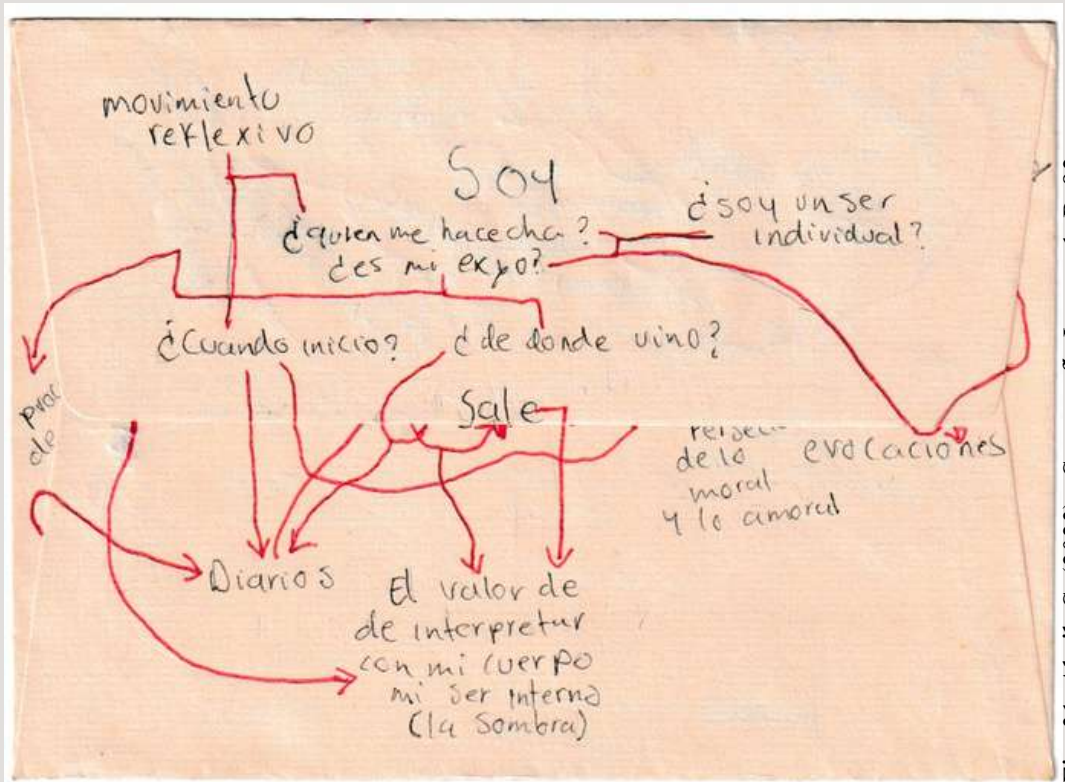 movimiento
reflexivo
Soy
¿quien me hace cha?
¿es mi exyo?
¿soy un ser
individual?
¿Cuando inicio?
¿de donde vino?
Sale
de
de lo
moral
y lo amoral
evocaciones
Diarios
El valor de
de interpretar
con mi cuerpo
mi ser interno
(la sombra)